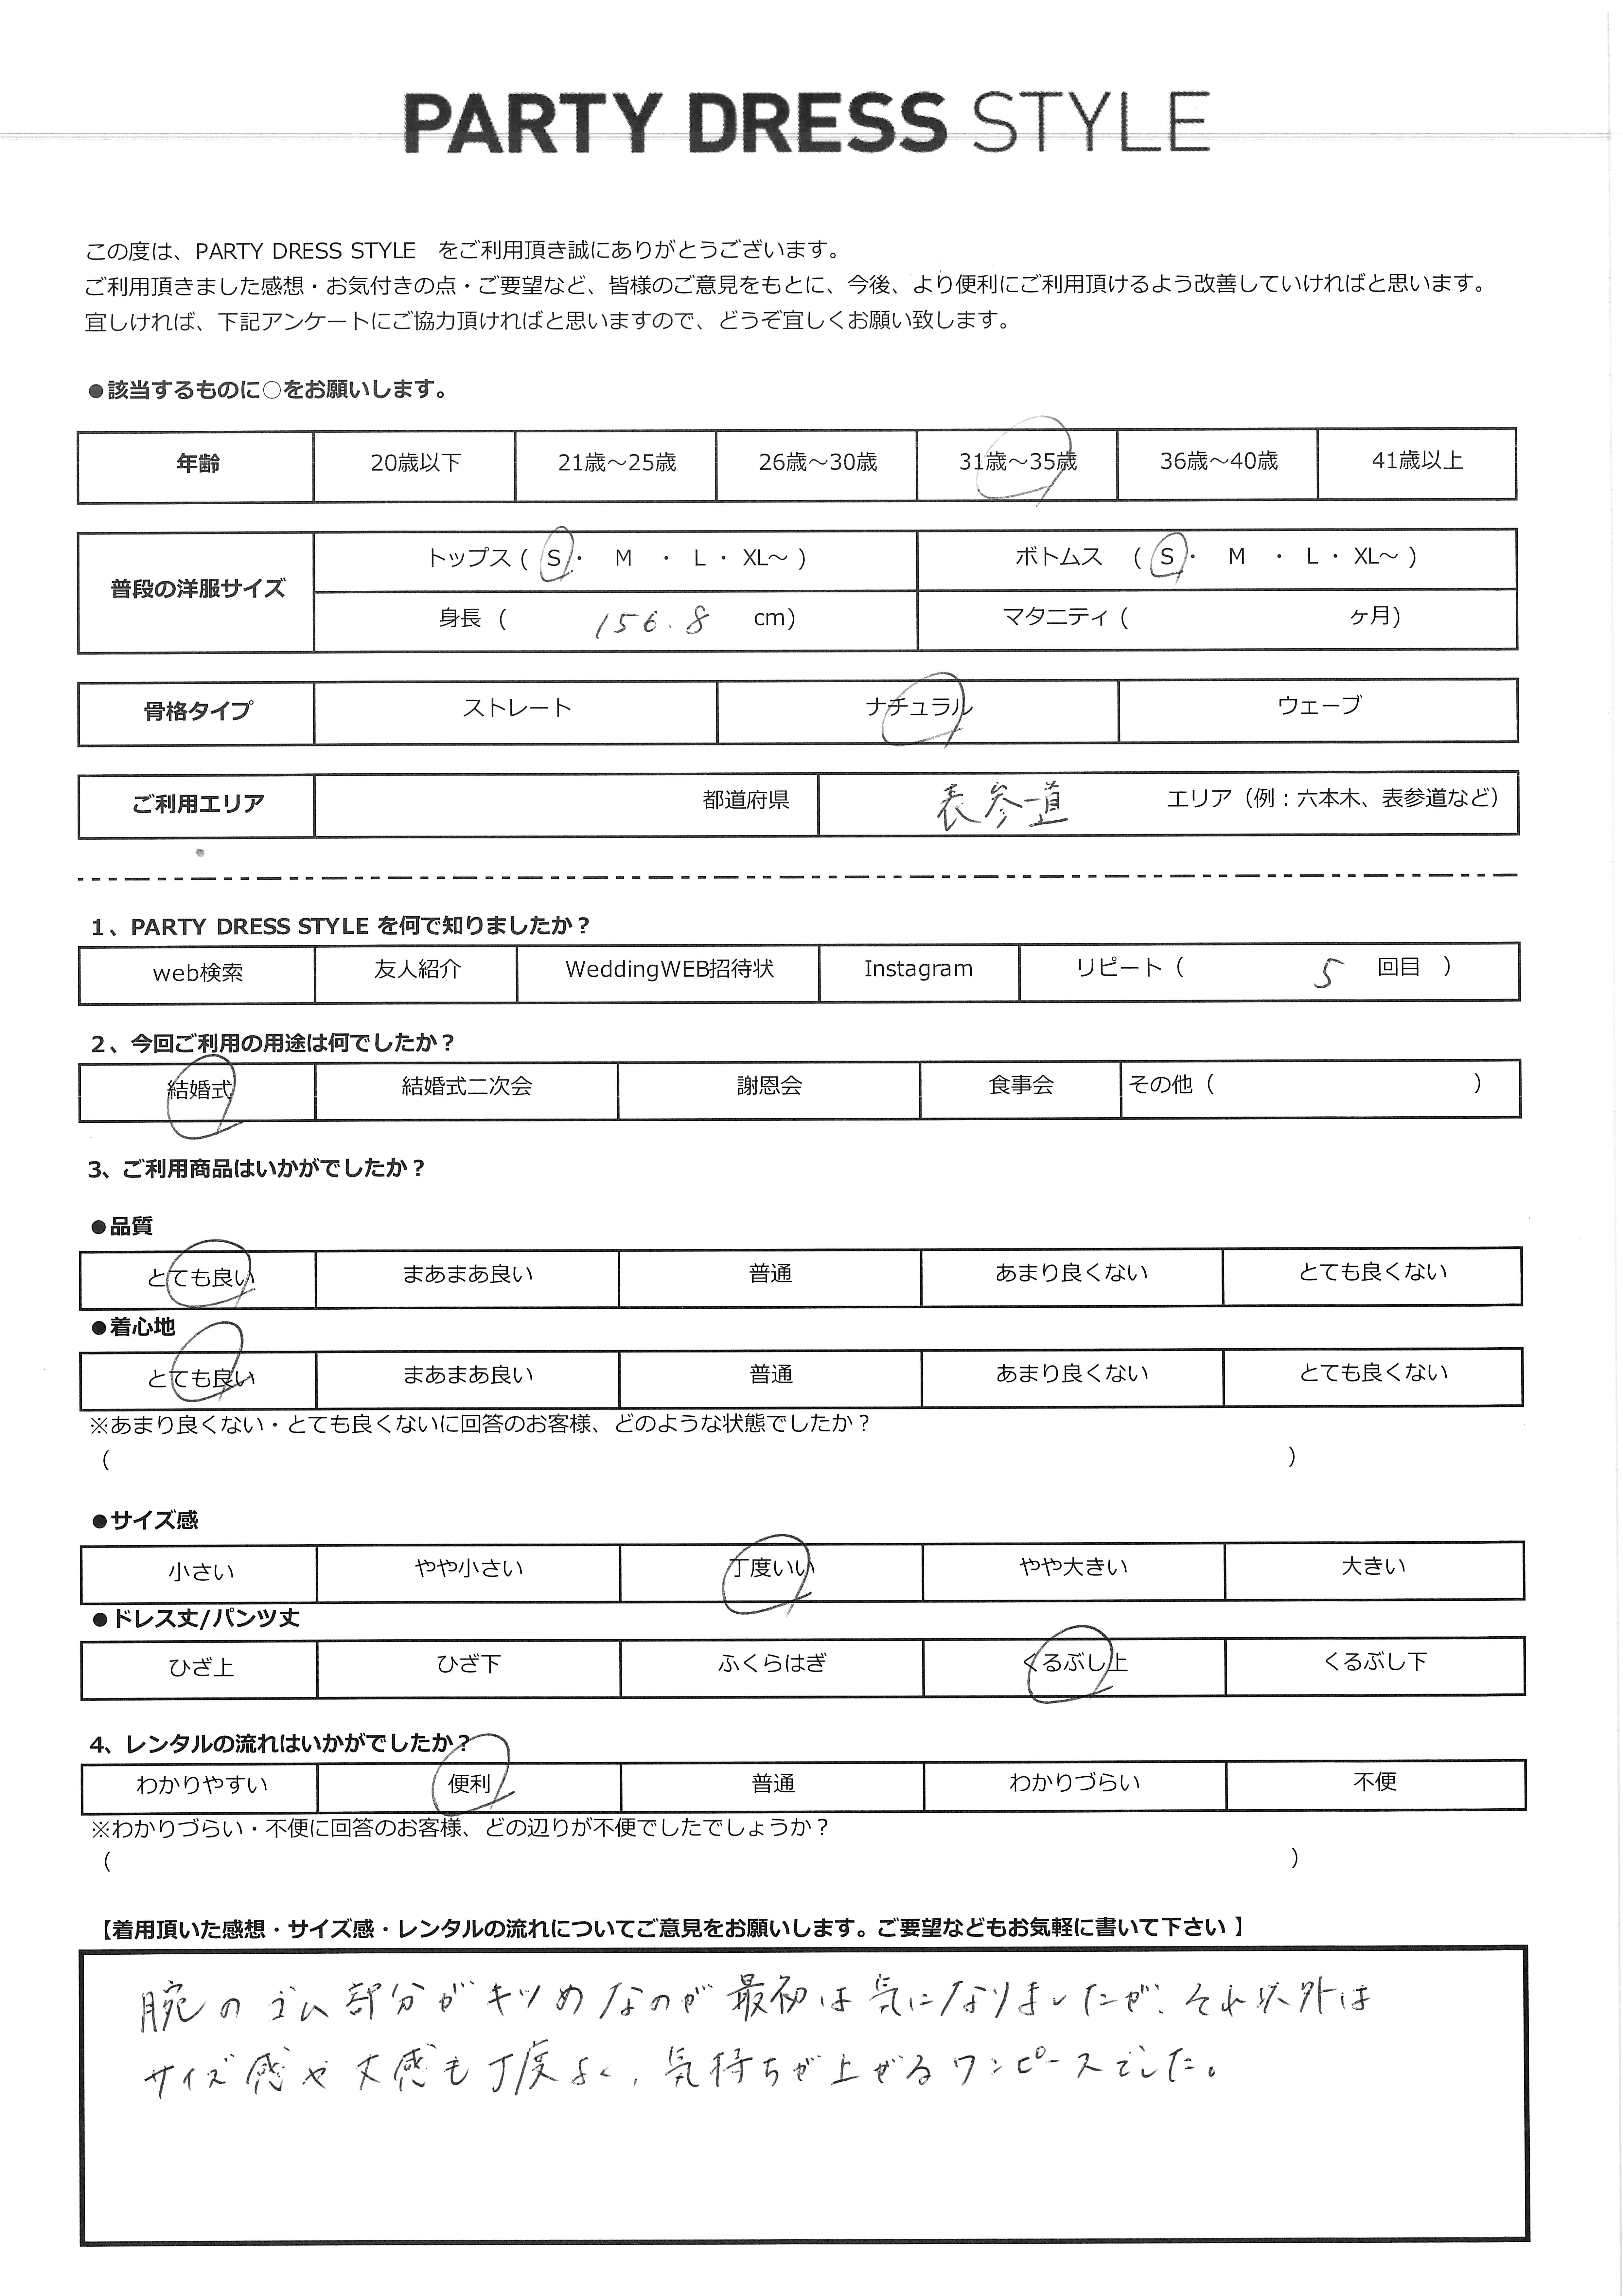 PARTY DRESS STYLE
この度は、PARTY DRESS STYLE　をご利用頂き誠にありがとうございます。
ご利用頂きました感想・お気付きの点・ご要望など、皆様のご意見をもとに、今後、より便利にご利用頂けるよう改善していければと思います。
宜しければ、下記アンケートにご協力頂ければと思いますので、どうぞ宜しくお願い致します。
●該当するものに○をお願いします。
年齢 20歳以下 21歳～25歳 26歳～30歳 31歳～35歳 36歳～40歳 41歳以上
普段の洋服サイズ トップス ( S ・ M ・ L ・ XL～ ) ボトムス ( S ・ M ・ L ・ XL～ )
身長 ( 156.8 cm) マタニティ ( ヶ月)
骨格タイプ ストレート ナチュラル ウェーブ
ご利用エリア 都道府県 表参道 エリア（例：六本木、表参道など）
1、PARTY DRESS STYLE を何で知りましたか？
web検索 友人紹介 WeddingWEB招待状 Instagram リピート（ 5 回目 ）
2、今回ご利用の用途は何でしたか？
結婚式 結婚式二次会 謝恩会 食事会 その他（ ）
3、ご利用商品はいかがでしたか？
●品質
とても良い まあまあ良い 普通 あまり良くない とても良くない
●着心地
とても良い まあまあ良い 普通 あまり良くない とても良くない
※あまり良くない・とても良くないに回答のお客様、どのような状態でしたか？
（ ）
●サイズ感
小さい やや小さい 丁度いい やや大きい 大きい
●ドレス丈/パンツ丈
ひざ上 ひざ下 ふくらはぎ くるぶし上 くるぶし下
4、レンタルの流れはいかがでしたか？
わかりやすい 便利 普通 わかりづらい 不便
※わかりづらい・不便に回答のお客様、どの辺りが不便でしたでしょうか？
（ ）
【着用頂いた感想・サイズ感・レンタルの流れについてご意見をお願いします。ご要望などもお気軽に書いて下さい 】
腕のゴム部分がキツめなのが最初は気になりましたが、それ以外は
サイズ感や丈感も丁度よく、気持ちが上がるワンピースでした。